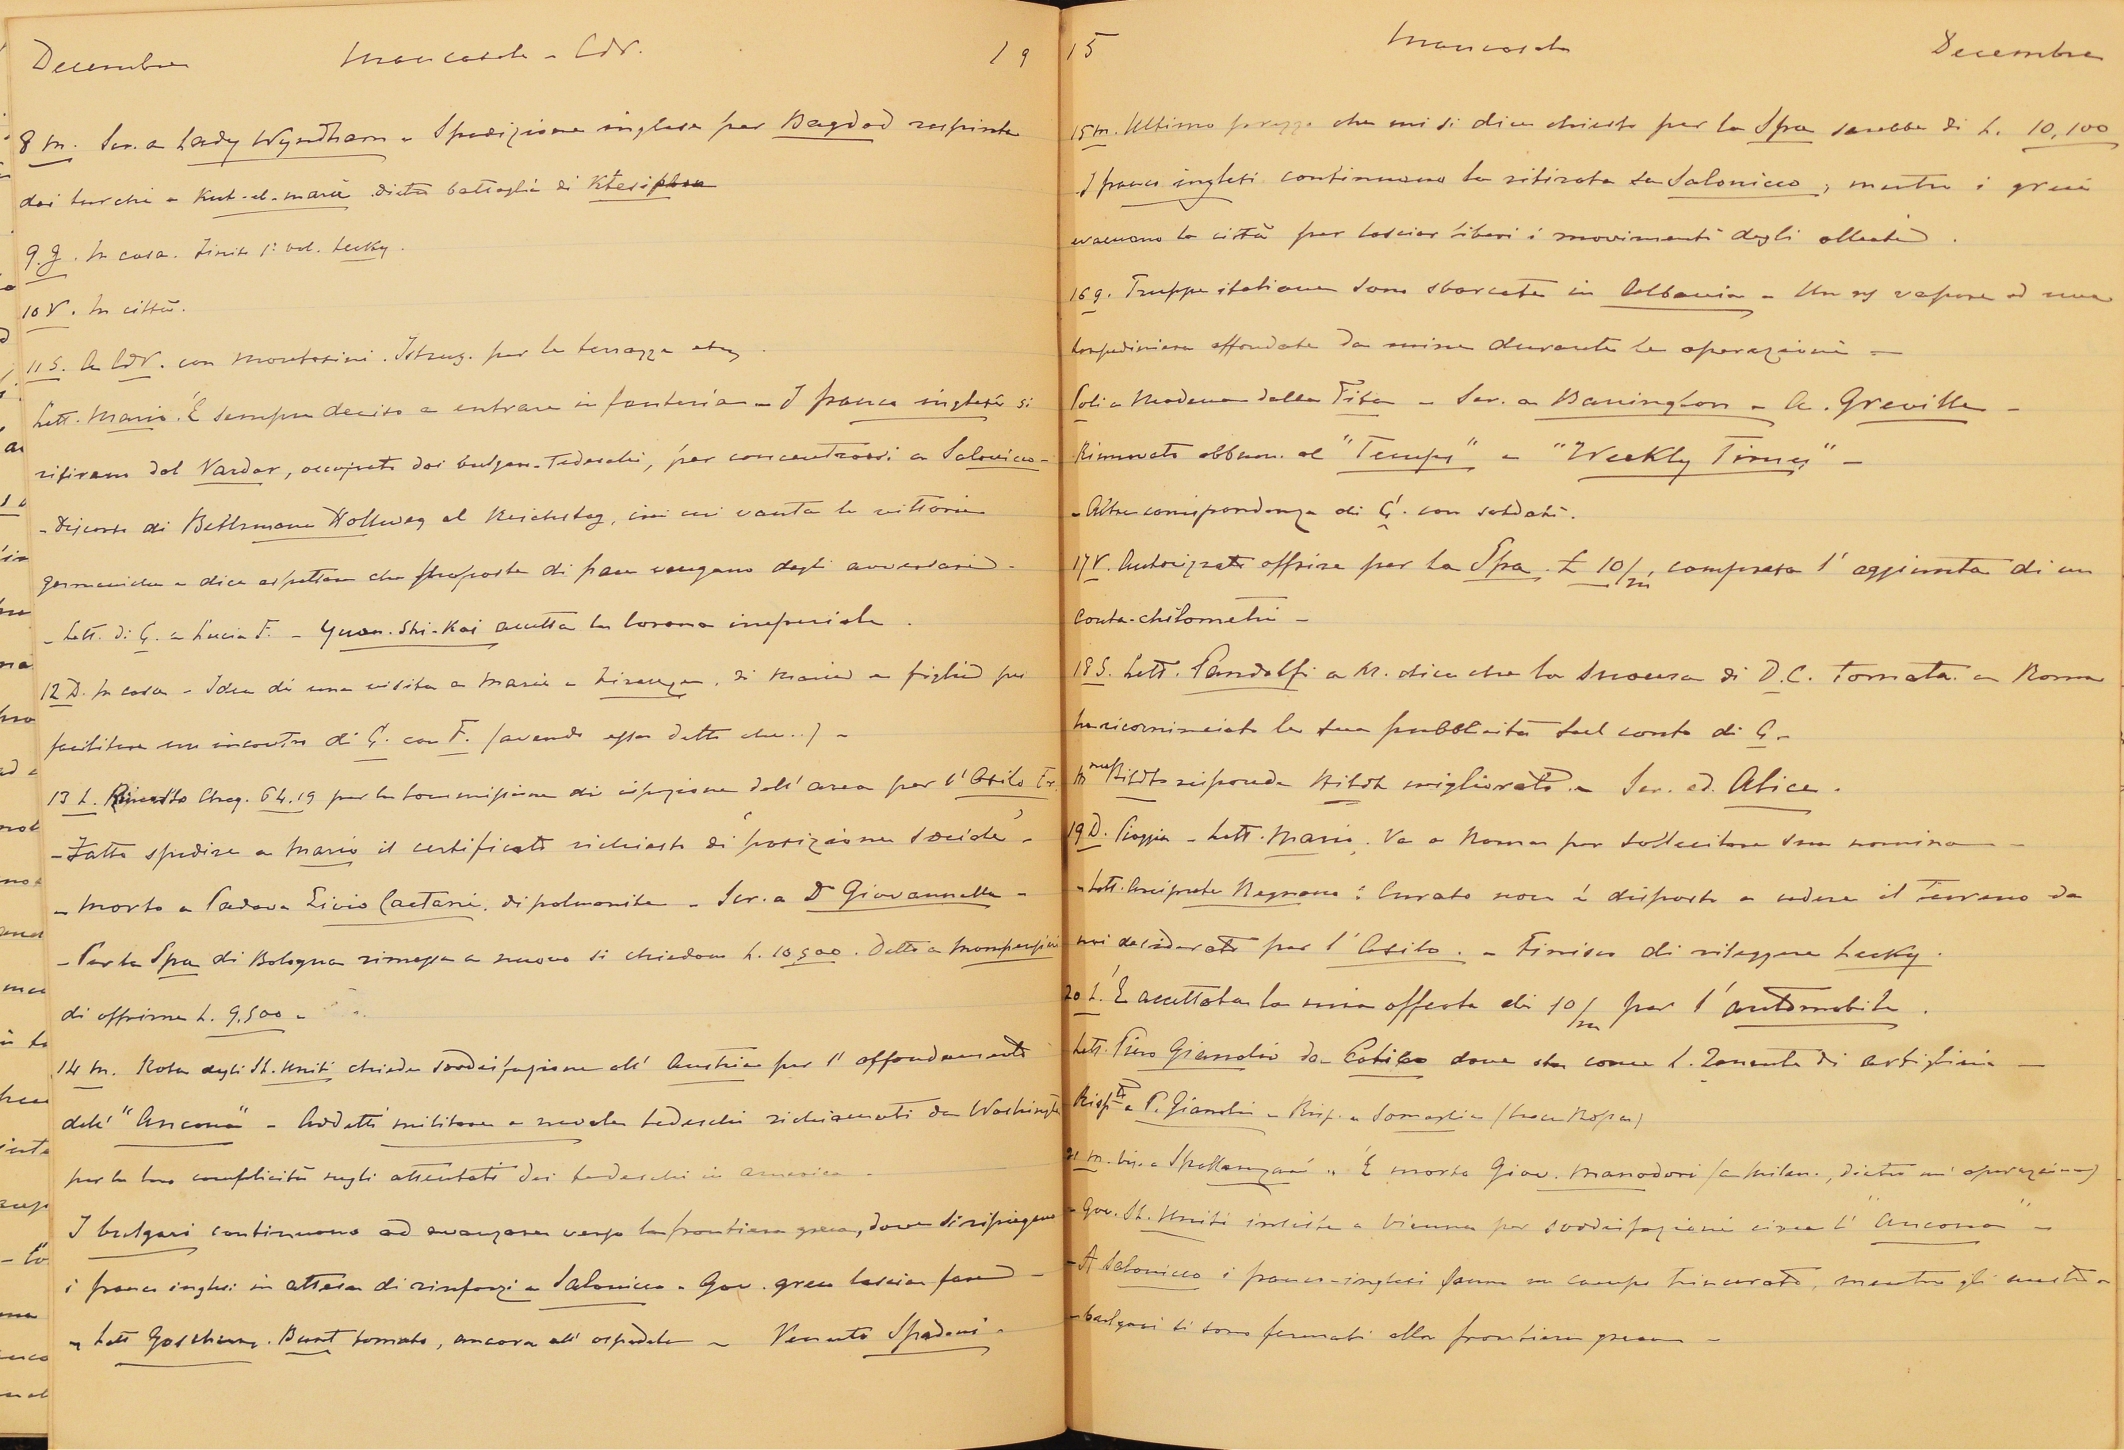 Decembre Mancasale - CdV. 19
8 M. Scr. a Lady Wyndham - Spedizione inglese per Bagdad respinta
dai turchi a Kut-el-marie dietro battaglia di Ktesiphon
9. G. In casa. Finito 1° vol. Lecky.
10 V. In città.
11 S. A CdV. con Montorsini. Istruz. per la terrazza etc.
Lett. Mario. È sempre deciso a entrare in fanteria - I franco inglesi si
ritirano dal Vardar, occupato dai bulgaro-Tedeschi, per concentrarsi a Salonicco -
- Discorso di Bethmann Hollweg al Reichstag, in cui vanta le vittorie
germaniche e dice aspettare che proposte di pace vengano dagli avversari -
- Lett. di G. a Lucia F. - Yuan-Shi-Kai accetta la corona imperiale.
12 D. In casa - Idea di una visita a Marie a , di Maria e figlie per
facilitare un incontro di G. con F. (avendo essa detto che..) -
13 L. Rimesso Cheq. 64.19 per la commissione di ispezione dell'area per l'Asilo Fr.
- Fatto spedire a Mario il certificato richiesto di "posizione sociale" -
- Morto a Padova Livio Caetani, di polmonite - Scr. a Da Giovannella -
- Per la Spa di Bologna rimessa a nuovo si chiedono L. 10,500. Detto a
di offrirne L. 9,500 -
14 M. Nota degli St. Uniti chiede soddisfazione all'Austria per l'affondamento
dell'"Ancona" - Addetti militare e navale tedeschi richiamati da Washington
per la loro complicità negli attentati dei tedeschi in America -
I bulgari continuano ad avanzare verso la frontiera greca, dove si ripiegano
i franco inglesi in attesa di rinforzi a Salonicco - Gov. greco lascia fare -
- Lett Goschen. Bunt tornato, ancora all'ospedale - Venuto Spadoni -
15 Mancasale Decembre
15 M. Ultimo prezzo che mi si dice chiesto per la Spa sarebbe di L. 10,100
I franco inglesi continuano la ritirata su Salonicco, mentre i greci
evacuano la città per lasciar liberi i movimenti degli alleati.
16 G. Truppe italiane sono sbarcate in Albania - Un ns vapore ed una
torpediniera affondate da mine durante le operazioni -
Poli a Modena dalla Tita - Scr. a Barrington - A. Greville -
Rinnovato abbuon. al "Temps" e "Weekly Times" -
- Altra corrispondenza di G. con soldati.
17 V. Autorizzato offrire per la Spa £ 10/m, compresa l'aggiunta di un
conta-chilometri -
18 S. Lett. Pandolfi a M. dice che la suocera di D.C. tornata a Roma
ha ricominciato la sua pubblicità sul conto di G -
Mme Bildt risponde Bildt migliorato - Scr. ad Alice.
19 D. Pioggia - Lett. Mario. Va a Roma per sollecitare sua nomina -
- Lett. Arciprete Bagnano: Curato non è disposto a cedere il terreno da
noi desiderato per l'Asilo. - Finisco di rileggere Lecky.
20 L. È accettata la mia offerta di 10/m per l'automobile.
Lett. Piero Gianolio da dove sta come S. Tenente di artiglieria -
Rispto a P. Gianolio - Risp. a Somaglia (Croce Rossa)
21 M. Vis. a Spallanzani - È morto Giov. Manodori (a Milano, dietro un'operazione)
- Gov. St. Uniti insiste a Vienna per soddisfazioni circa l'"Ancona" -
- A Salonicco i franco-inglesi fanno un campo trincerato, mentre gli austro
- bulgari si sono fermati alla frontiera greca -